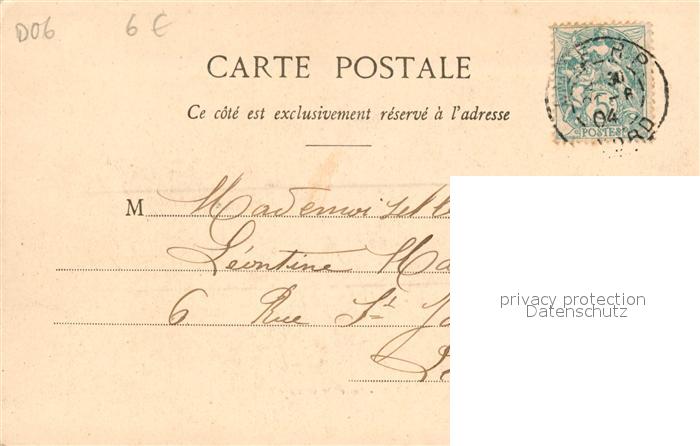 D06 6 €
CARTE POSTALE
Ce côté est exclusivement réservé à l'adresse
5
POSTES
04
M Mademoiselle
Léontine
6 Rue St
privacy protection
Datenschutz